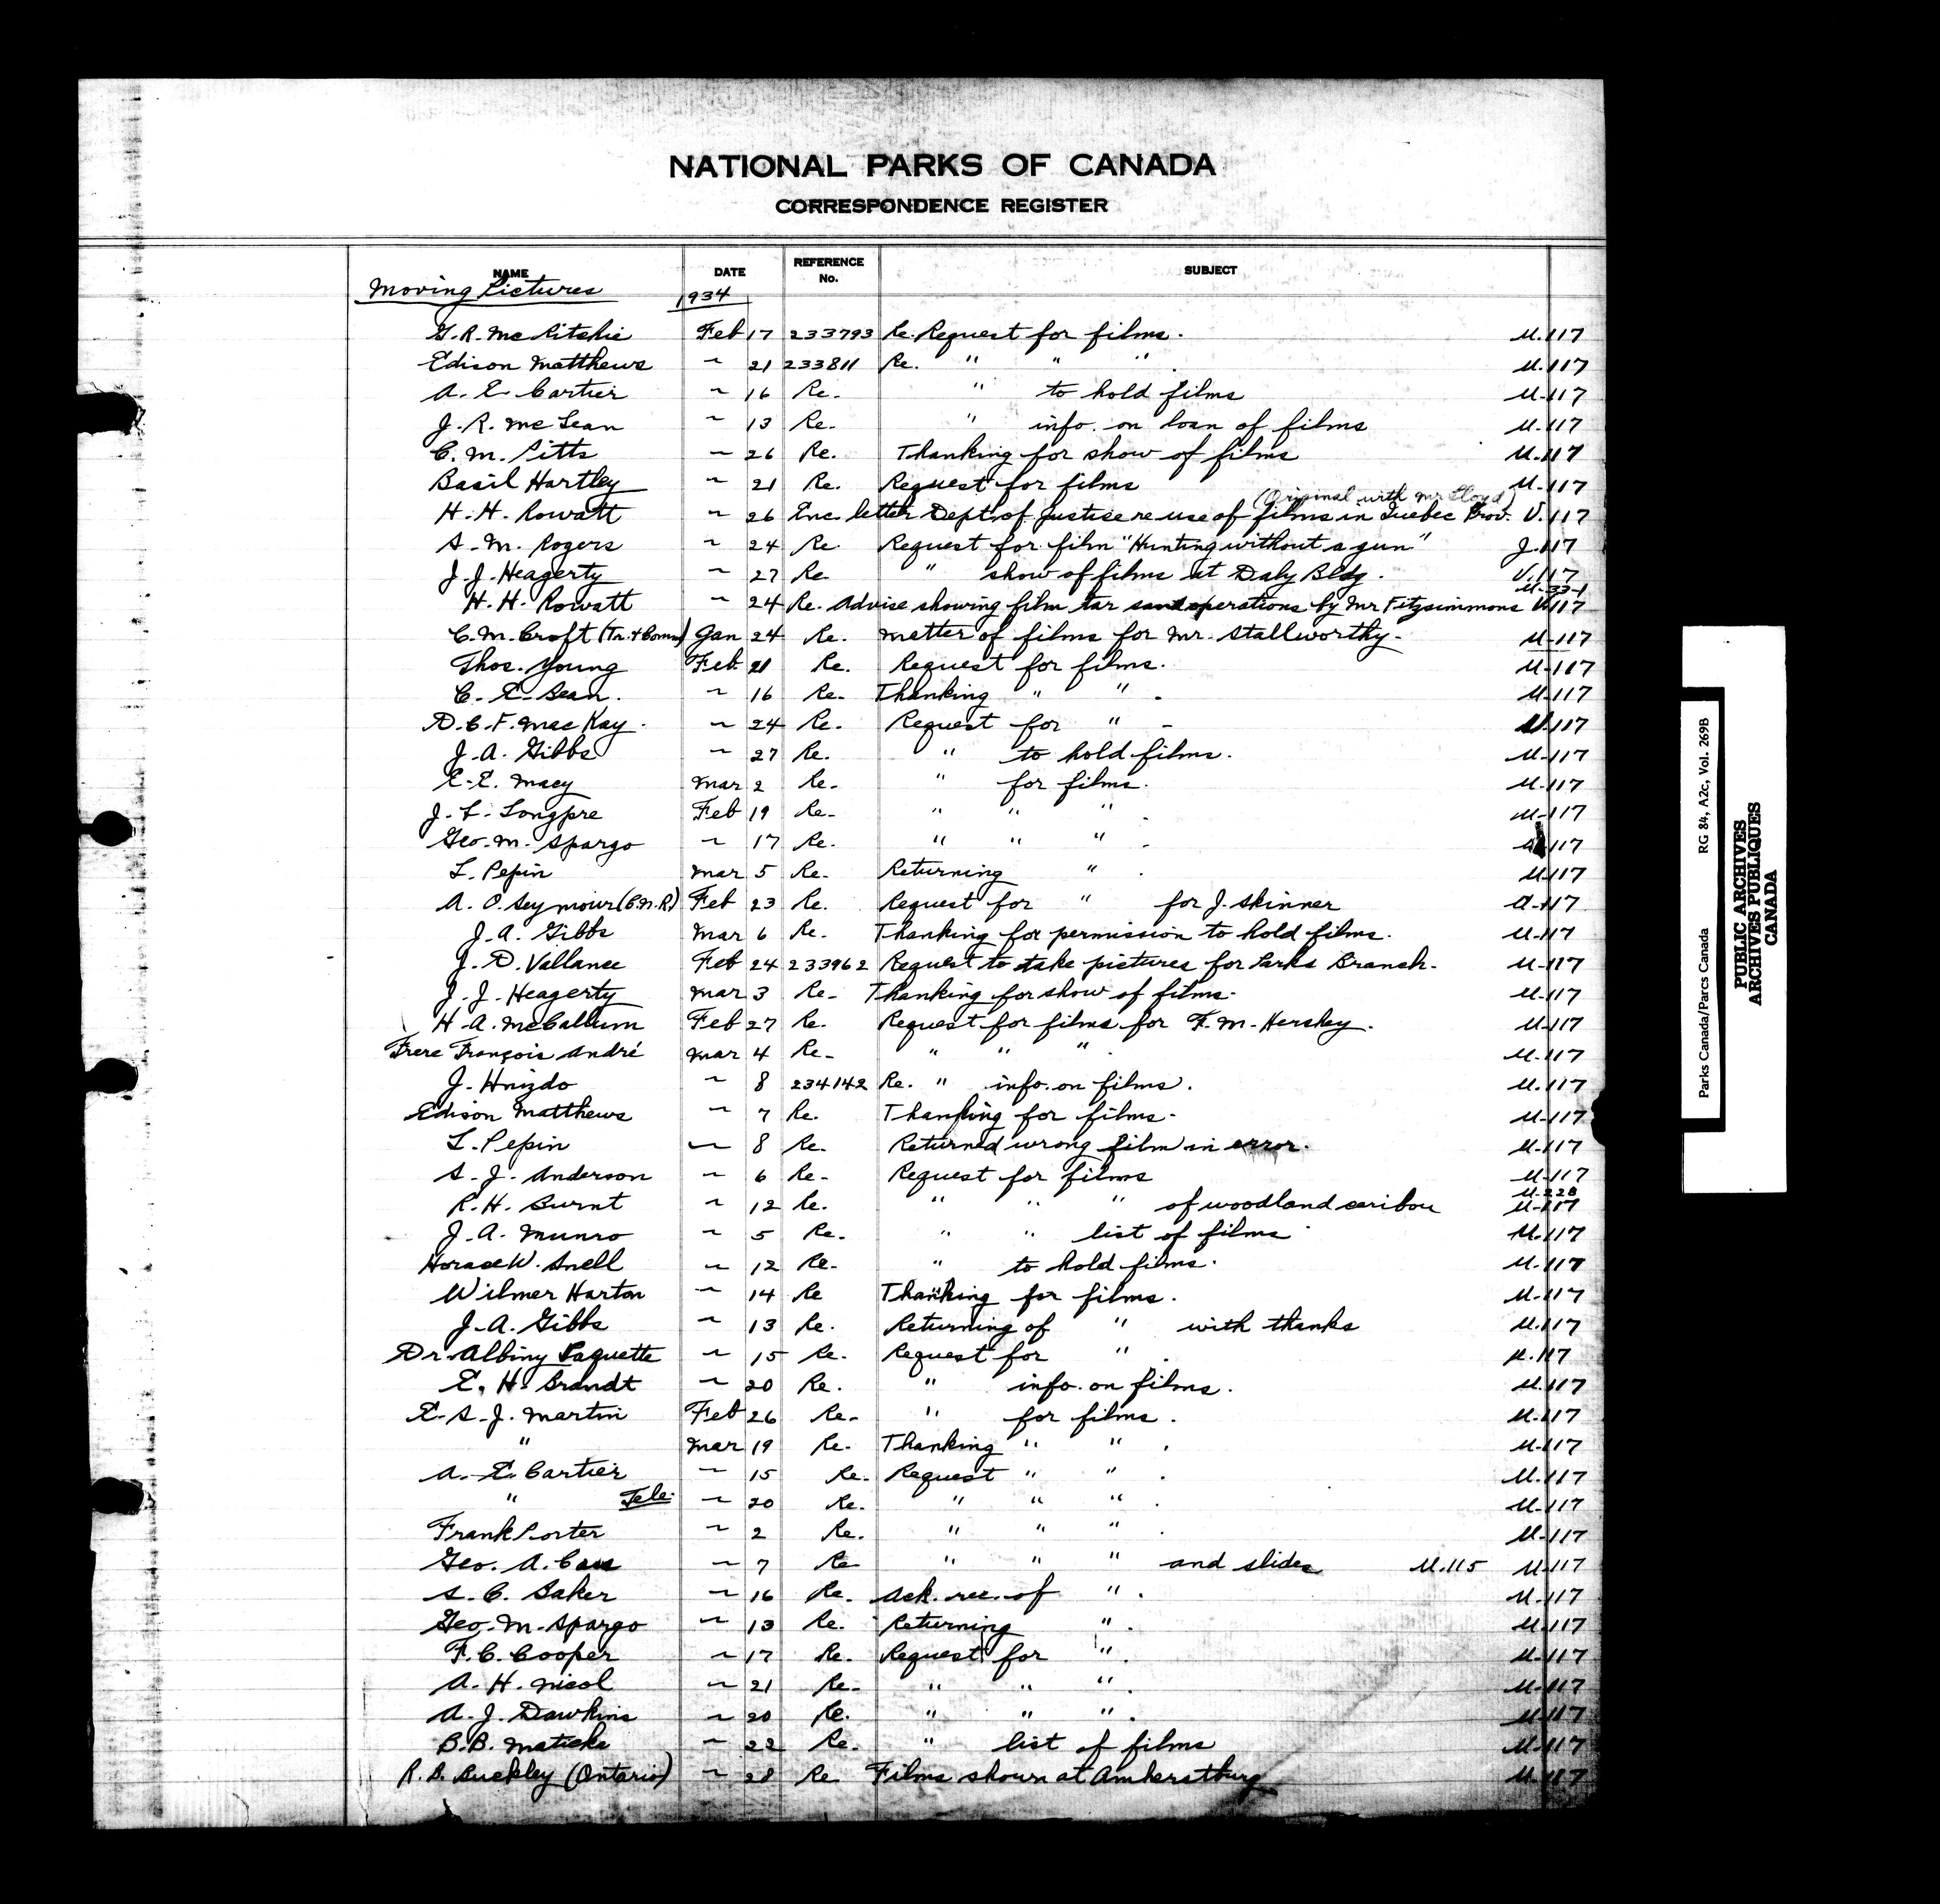 NATIONAL PARKS OF CANADA
CORRESPONDENCE REGISTER
NAME DATE REFERENCE No. SUBJECT
Moving Pictures 1934
G. R. McRitchie Feb 17 233793 Re. Request for films. U.117
Edison Matthews ~ 21 233811 Re. " " " . U.117
A. E. Cartier ~ 16 Re. " to hold films U.117
J. R. McLean ~ 13 Re. " info. on loan of films U.117
C. M. Pitts ~ 26 Re. Thanking for show of films U.117
Basil Hartley ~ 21 Re. Request for films U.117
(Original with Mr Lloyd)
H. H. Rowatt ~ 26 Enc. letter Dept. of Justice re use of films in Quebec Prov. U.117
S. M. Rogers ~ 24 Re. Request for film "Hunting without a gun" J.117
J. J. Heagerty ~ 27 Re. " show of films at Daly Bldg. U.117
U-33-1
H. H. Rowatt ~ 24 Re. Advise showing film tar sand operations by Mr Fitzsimmons U.117
C. M. Croft (Tr. & Comm) Jan 24 Re. Matter of films for Mr. Stallworthy. U-117
Thos. Young Feb 21 Re. Request for films. U-117
C. E. Bean. ~ 16 Re. Thanking " " . U-117
D. C. F. MacKay. ~ 24 Re. Request for " - U.117
J. A. Gibbs ~ 27 Re. " to hold films. U-117
E. E. Macy Mar 2 Re. " for films. U-117
J. L. Longpre Feb 19 Re. " " " . U-117
Geo. M. Spargo ~ 17 Re. " " " . 117
L. Pepin Mar 5 Re. Returning " . U-117
A. O. Seymour (C.N.R.) Feb 23 Re. Request for " for J. Skinner U-117
J. A. Gibbs Mar 6 Re. Thanking for permission to hold films. U-117
J. D. Vallance Feb 24 233962 Request to take pictures for Parks Branch. U-117
J. J. Heagerty Mar 3 Re. Thanking for show of films. U-117
H. A. McCallum Feb 27 Re. Request for films for F. M. Hershey. U-117
Frere François André Mar 4 Re. " " " . U-117
J. Hnizdo ~ 8 234142 Re. " info. on films. U.117
Edison Matthews ~ 7 Re. Thanking for films. U-117
L. Pepin ~ 8 Re. Returned wrong film in error. U-117
S. J. Anderson ~ 6 Re. Request for films U-117
U-228
R. H. Burnt ~ 12 Re. " " " of woodland caribou U-117
J. A. Munro ~ 5 Re. " " list of films U.117
Horace W. Snell ~ 12 Re. " to hold films. U-117
Wilmer Harton ~ 14 Re Thanking for films. U-117
J. A. Gibbs ~ 13 Re. Returning of " with thanks U.117
Dr. Albiny Paquette ~ 15 Re. Request for " . U.117
E. H. Brandt ~ 20 Re. " info. on films. U.117
E. S. J. Martin Feb 26 Re. " for films. U-117
" Mar 19 Re. Thanking " " . U-117
A. E. Cartier ~ 15 Re. Request " " . U.117
" Tele. ~ 20 Re. " " " . U-117
Frank Porter ~ 2 Re. " " " . U-117
Geo. A. ~ 7 Re " " " and slides U.115 U-117
S. C. Baker ~ 16 Re. Ack. rec. of " . U-117
Geo. M. Spargo ~ 13 Re. Returning " . U-117
F. C. Cooper ~ 17 Re. Request for " . U-117
A. H. Nicol ~ 21 Re. " " " . U-117
A. J. Dawkins ~ 20 Re. " " " . U-117
B. B. ~ 22 Re. " list of films U-117
R. B. Buckley (Ontario) ~ 28 Re Films shown at Amherstburg U-117
Parks Canada/Parcs Canada RG 84, A2c, Vol. 269B
PUBLIC ARCHIVES
ARCHIVES PUBLIQUES
CANADA